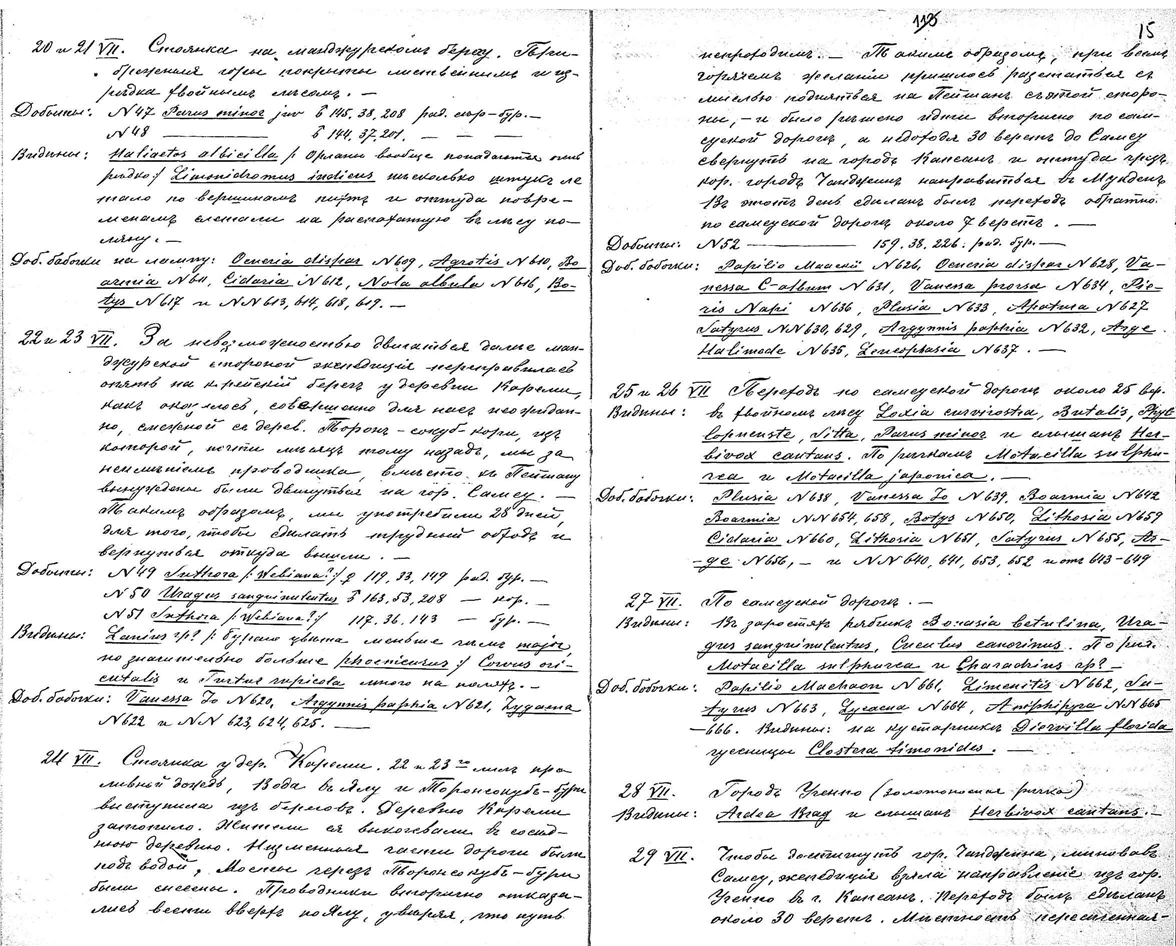 20 и 21 VII. Стоянка на манджурскомъ берегу. Бли-
горы покрыты лиственнымъ и из-
рѣдка хвойнымъ лѣсомъ. —
Добыты: N 47 Parus minor juv ♂ 145, 38, 208 рад. сѣр-бур. —
N 48 ——— ♂ 144, 37, 201. — — —
Видѣны: Haliaetos albicilla /: Орланы вообще попадаются очень
рѣдко :/ Limonidromus indicus нѣсколько штукъ ле
тало по вершинамъ и оттуда повре-
менамъ слетали на распаханную въ лѣсу по-
ляну. —
Доб. бабочки на лампу: Ocneria dispar N 609, Agrotis N 610, Bo
armia N 611, Cidaria N 612, Nola albula N 616, Bo-
tys N 617 и NN 613, 614, 618, 619. —
22 и 23 VII. За невозможностью двигаться далѣе ман-
джурской стороной экспедиція переправилась
опять на корейскій берегъ у деревни Карелми,
какъ оказалось, совершенно для насъ неожидан-
но, смежной съ дерев. Торон-сокуб-кори, изъ
которой, почти мѣсяцъ тому назадъ, мы за
неимѣніемъ проводника, вмѣсто къ Пейшану
вынуждены были двинуться на гор. Самсу. —
Такимъ образомъ, мы употребили 28 дней,
для того, чтобы сдѣлать трудный обходъ и
вернуться откуда вышли. —
Добыты: N 49 Suthora /: Webiana? :/ ♀ 119, 33, 149 рад. бур. —
N 50 Uragus sanguinolentus ♂ 163, 53, 208 — кор. —
N 51 Suthora /: Webiana? :/ 117. 36. 143 — бур. —
Видѣны: Lanius sp? /: бураго цвѣта меньше чѣмъ major,
но значительно больше phoenicurus :/ Corvus ori-
entalis и Turtur rupicola много на поляхъ. —
Доб. бабочки: Vanessa Jo N 620, Argynnis paphia N 621, Zygaena
N 622 и NN 623, 624, 625. —
24 VII. Стоянка у дер. Карелми. 22 и 23го лилъ про
ливной дождь, Вода въ Ялу и Торонсокубъ-бури
выступила изъ береговъ. Деревню Карелми
затопило. Жители ея выкочевали въ сосѣд-
нюю деревню. Низменныя части дороги были
подъ водой, Мосты черезъ Торонсокубъ-бури
были снесены. Проводники вторично отказа-
лись вести вверхъ по Ялу, увѣряя, что путь
115 15
непроходимъ. — Такимъ образомъ, при всемъ
горячемъ желаніи пришлось разстаться съ
мыслью подняться на Пейшанъ съ этой сторо-
ны, — и было рѣшено идти вторично по сам-
суской дорогѣ, а недоходя 30 верстъ до Самсу
свернуть на городъ Капсанъ и оттуда чрезъ
кор. городъ Чанджинъ направиться въ Мукденъ
Въ этотъ день сдѣланъ былъ переходъ обратно
по самсуской дорогѣ около 7 верстъ. —
Добыты: N 52 ——— 159. 38. 226. рад. бур. —
Доб. бабочки: Papilio Maackii N 626, Ocneria dispar N 628, Va-
nessa C-album N 631, Vanessa prorsa N 634, Pie-
ris Napi N 636, Plusia N 633, Apatura N 627
Satyrus NN 630, 629, Argynnis paphia N 632, Arge
Halimede N 635, Leucophasia N 637. —
25 и 26 VII Переходъ по самсуской дорогѣ около 25 вер.
Видѣны: въ хвойномъ лѣсу Loxia curvirostra, Butalis, Phyl
lopneuste, Sitta, Parus minor и слышанъ Her-
bivox cantans. По рѣчкамъ Motacilla sulphu-
rea и Motacilla japonica. —
Доб. бабочки: Plusia N 638, Vanessa Jo N 639, Boarmia N 642
Boarmia NN 654, 658, Botys N 650, Lithosia N 659
Cidaria N 660, Lithosia N 651, Satyrus N 655, Ar-
ge N 656, — и NN 640, 641, 653, 652 и отъ 643-649
27 VII. По самсуской дорогѣ. —
Видѣны: Въ заросляхъ рябчикъ Bonasia betulina, Ura-
gus sanguinolentus, Cuculus canorinus. По рѣч.
Motacilla sulphurea и Charadrius sp? —
Доб. бабочки: Papilio Machaon N 661, Limenitis N 662, Sa-
tyrus N 663, Lycaena N 664, Amphipyra NN 665
—666. Видѣны: на кустарникѣ Diervilla florida
гусеницы Clostera timonides. —
28 VII. Городъ Ученпо (золотоносная рѣчка)
Видѣны: Ardea Krag и слышанъ Herbivox cantans. —
29 VII. Чтобы достигнуть гор. Чанджина, миновавъ
Самсу, экспедиція взяла направленіе изъ гор.
Ученпо въ г. Капсанъ. Переходъ былъ сдѣланъ
около 30 верстъ. Мѣстность пересѣченная-